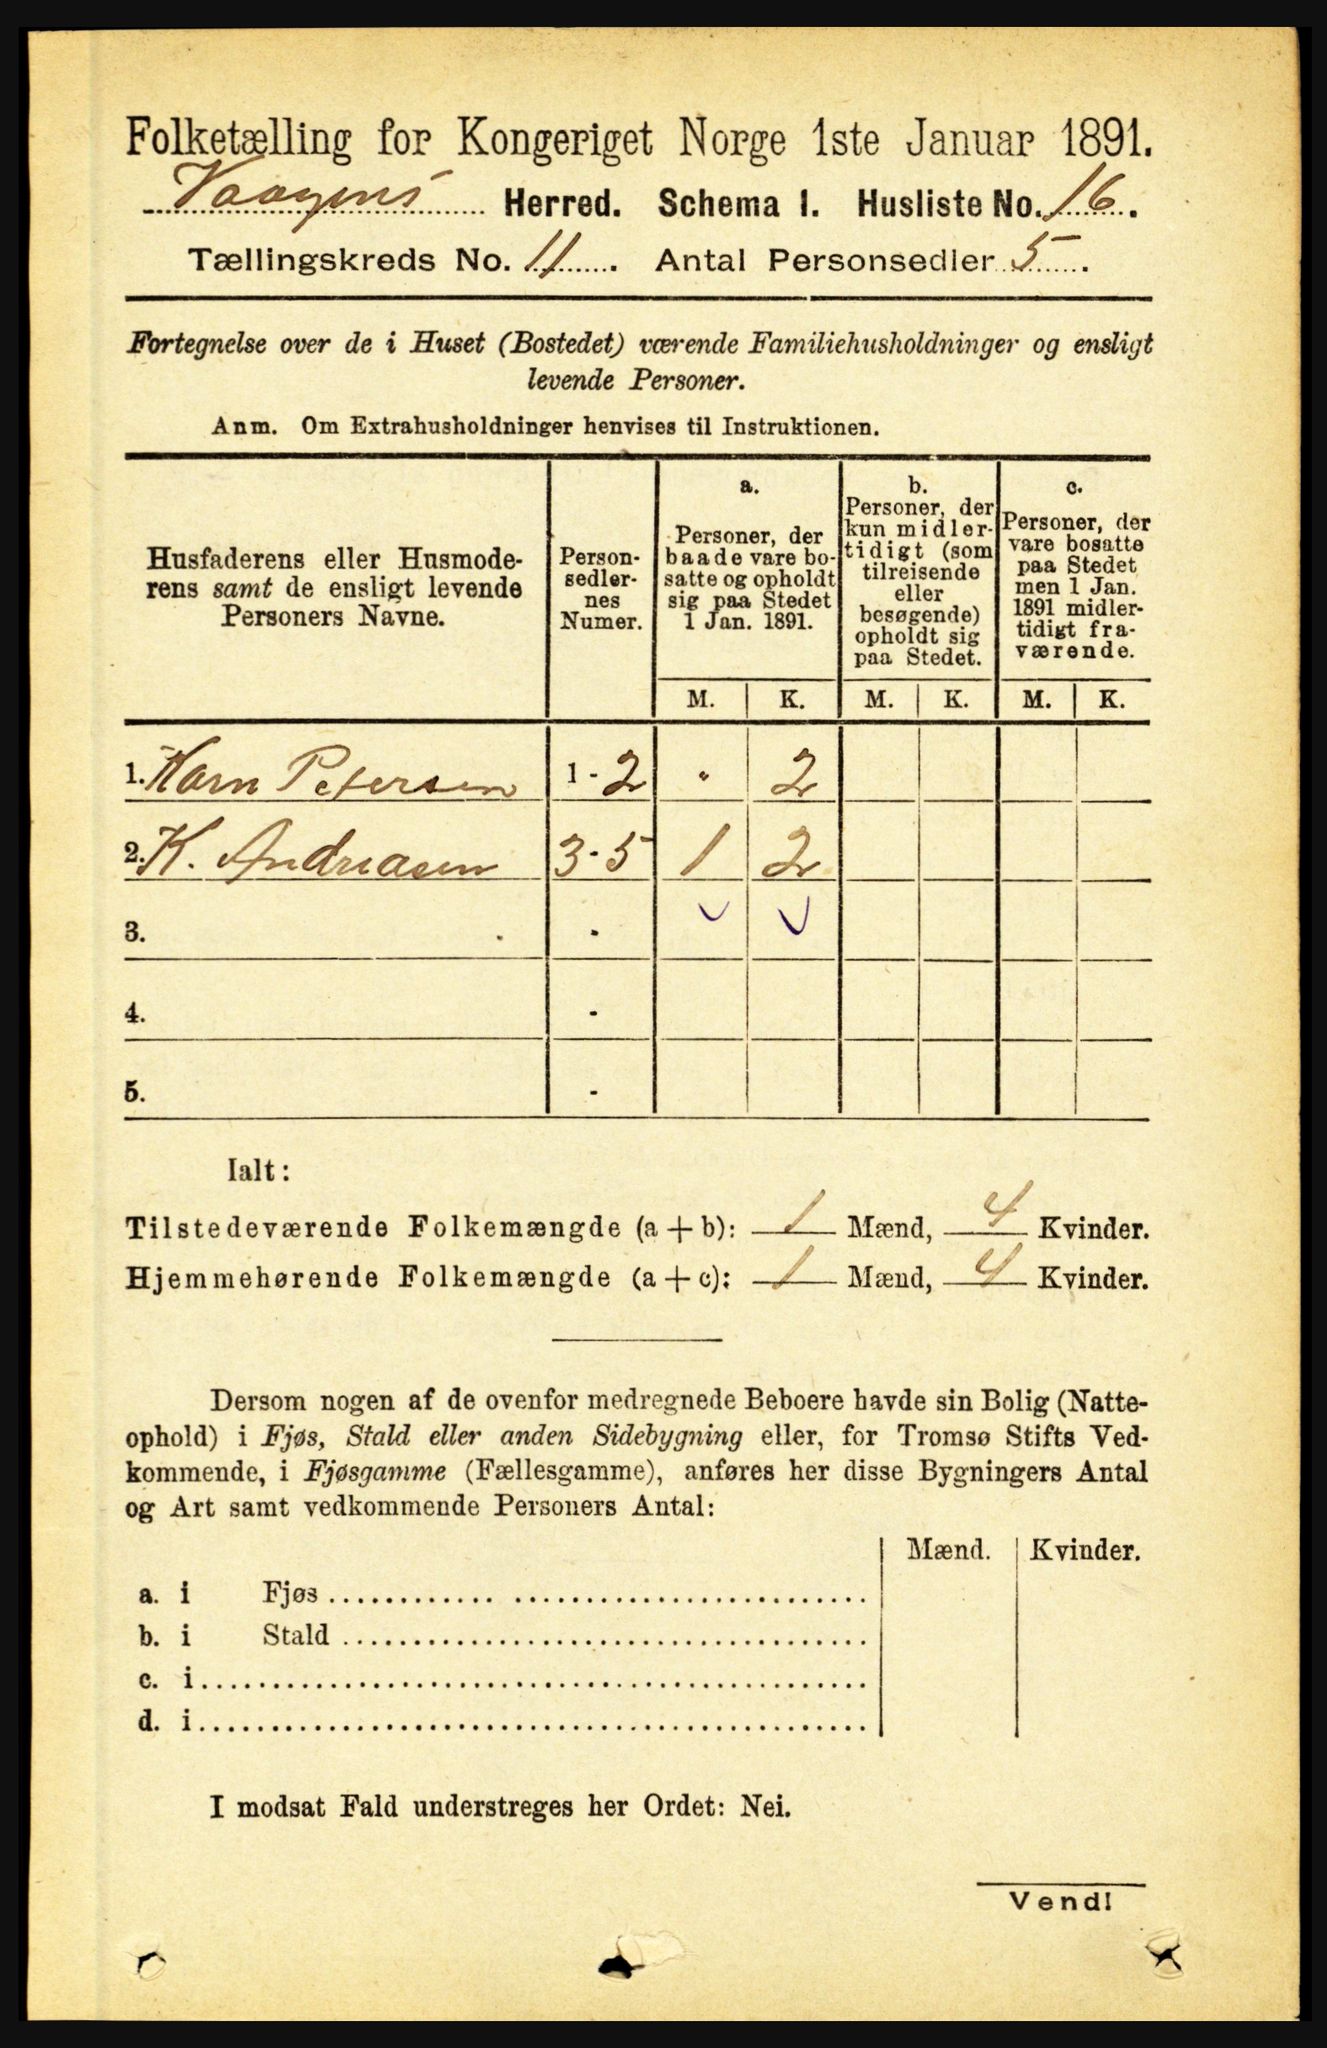 Folketælling for Kongeriget Norge 1ste Januar 1891.
Vaagens Herred. Schema I. Husliste No. 16.
Tællingskreds No. 11. Antal Personsedler 5.
Fortegnelse over de i Huset (Bostedet) værende Familiehusholdninger og ensligt
levende Personer.
Anm. Om Extrahusholdninger henvises til Instruktionen.
Husfaderens eller Husmode-
rens samt de ensligt levende
Personers Navne.
Person-
sedler-
nes
Numer.
a.
Personer, der
baade vare bo-
satte og opholdt
sig paa Stedet
1 Jan. 1891.
b.
Personer, der
kun midler-
tidigt (som
tilreisende
eller
besøgende)
opholdt sig
paa Stedet.
c.
Personer, der
vare bosatte
paa Stedet
men 1 Jan.
1891 midler-
tidigt fra-
værende.
M. K. M. K. M. K.
1. Karn Petersen 1 - 2 " 2
2. K. Andreasen 3 - 5 1 2
3. -
4. -
5. -
Ialt:
Tilstedeværende Folkemængde (a + b): 1 Mænd, 4 Kvinder.
Hjemmehørende Folkemængde (a + c): 1 Mænd, 4 Kvinder.
Dersom nogen af de ovenfor medregnede Beboere havde sin Bolig (Natte-
ophold) i Fjøs, Stald eller anden Sidebygning eller, for Tromsø Stifts Ved-
kommende, i Fjøsgamme (Fællesgamme), anføres her disse Bygningers Antal
og Art samt vedkommende Personers Antal:
Mænd. Kvinder.
a. i Fjøs
b. i Stald
c. i
d. i
I modsat Fald understreges her Ordet: Nei.
Vend!